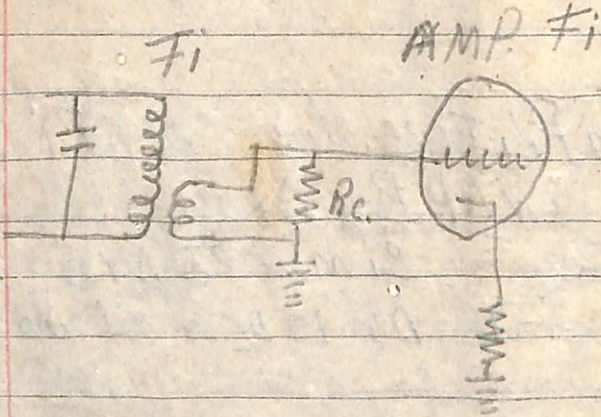 Fi
AMP. Fi
Rc.